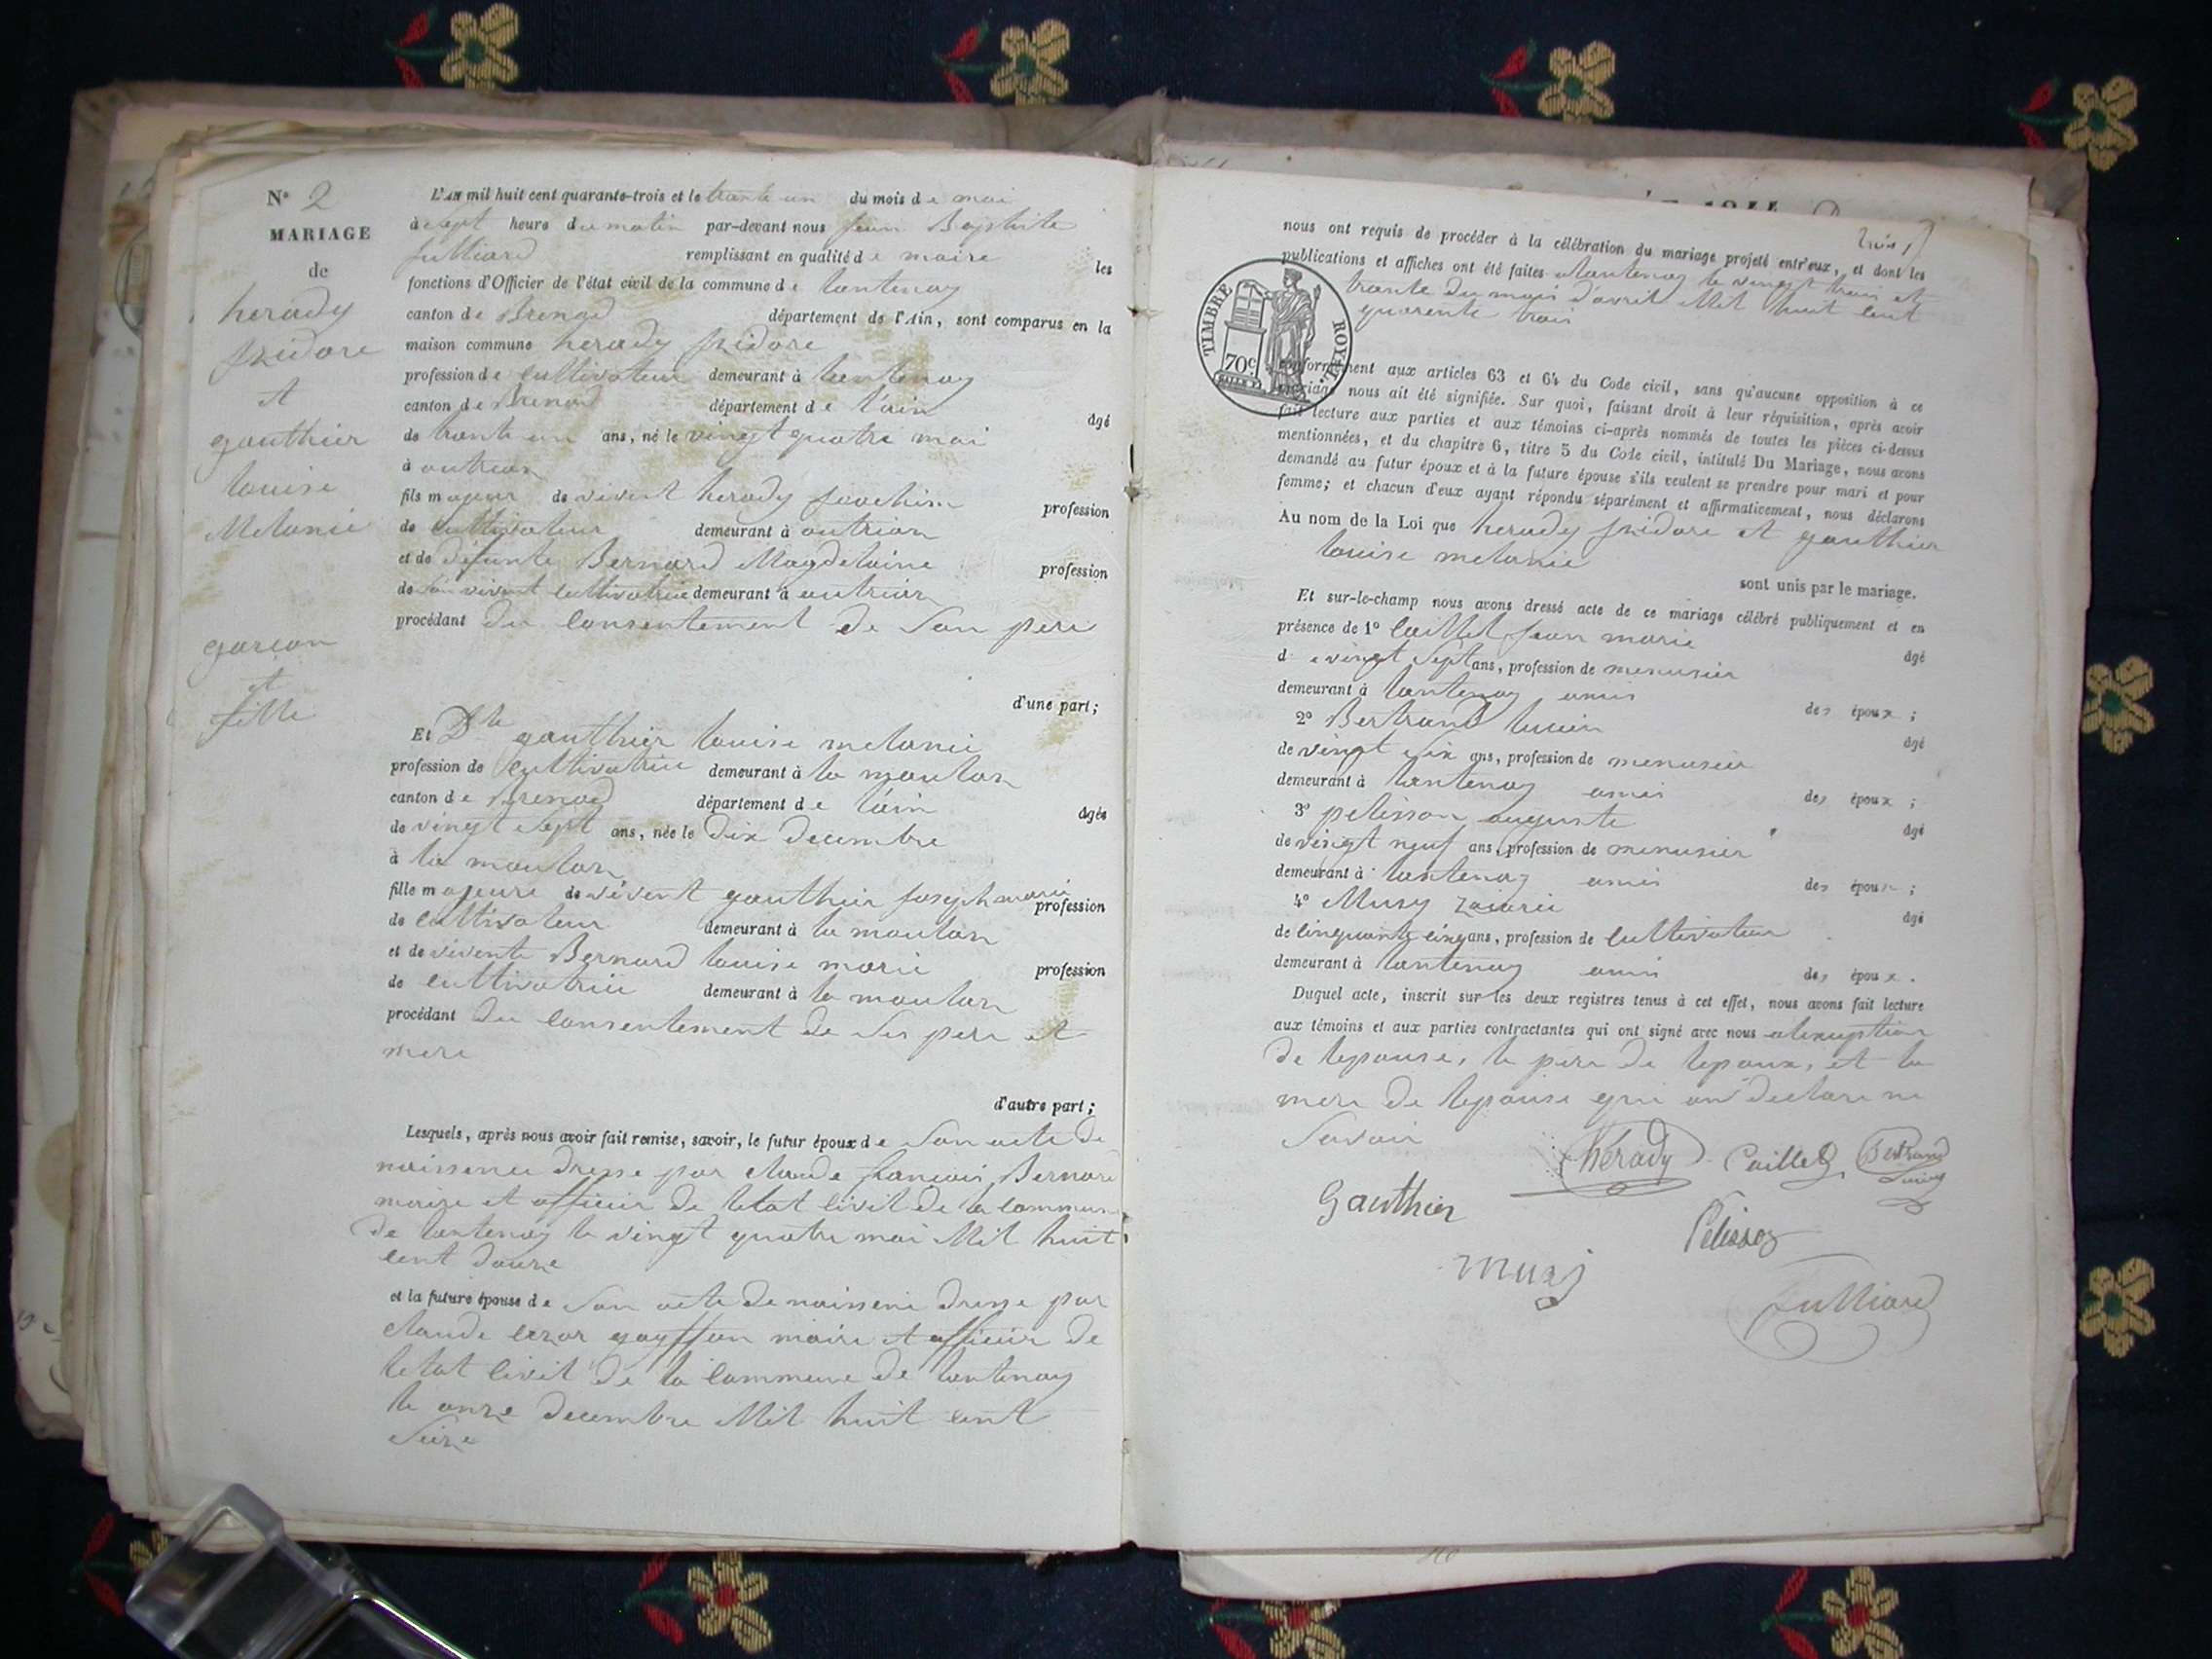 N° 2
MARIAGE
de
herady
Jzidore
et
gauthier
louise
Melanie
garcon
et
fille
L'AN mil huit cent quarante-trois et le trante un du mois de mai
à sept heure du matin par-devant nous jean Baptiste
julliard remplissant en qualité de maire les
fonctions d'Officier de l'état civil de la commune de lantenay
canton de Brenod département de l'Ain, sont comparus en la
maison commune herady jzidore
profession de cultivateur demeurant à lantenay
canton de Brenod département de l'ain âgé
de trante un ans, né le vingt quatre mai
à outrian
fils majeur de vivent herady joachim profession
de cultivateur demeurant à outrian
et de defunte Bernard Magdelaine profession
de son vivent cultivatrice demeurant à outrian
procédant du consentement de son pere
d'une part;
Et Dlle gauthier louise melanie
profession de cultivatrice demeurant à la moulan
canton de Brenod département de l'ain âgée
de vingt sept ans, née le dix decembre
à la moulan
fille majeure de vivent gauthier joseph marie profession
de cultivateur demeurant à la moulan
et de vivente Bernard louise marie profession
de cultivatrice demeurant à la moulan
procédant du consentement de ses pere et
mere
d'autre part;
Lesquels, après nous avoir fait remise, savoir, le futur époux de son acte de
naissence dresse par claude francois Bernard
maire et officier de letat civil de la commune
de lantenay le vingt quatre mai Mil huit
cent douze
et la future épouse de son acte de naissence dresse par
claude cezar gayffon maire et officier de
letat civil de la commune de lantenay
le onze decembre Mil huit cent
seize
trois
nous ont requis de procéder à la célébration du mariage projeté entr'eux, et dont les
publications et affiches ont été faites a lantenay le vingt trois et
trante du mois d'avril Mil huit cent
quarente trois
TIMBRE ROYAL
70c
conformément aux articles 63 et 64 du Code civil, sans qu'aucune opposition à ce
mariage nous ait été signifiée. Sur quoi, faisant droit à leur réquisition, après avoir
fait lecture aux parties et aux témoins ci-après nommés de toutes les pièces ci-dessus
mentionnées, et du chapitre 6, titre 5 du Code civil, intitulé Du Mariage, nous avons
demandé au futur époux et à la future épouse s'ils veulent se prendre pour mari et pour
femme; et chacun d'eux ayant répondu séparément et affirmativement, nous déclarons
Au nom de la Loi que herady jzidore et gauthier
louise melanie
sont unis par le mariage.
Et sur-le-champ nous avons dressé acte de ce mariage célébré publiquement et en
présence de 1° caillet jean marie âgé
de vingt sept ans, profession de menusier
demeurant à lantenay amis des époux;
2° Bertrand lucien âgé
de vingt six ans, profession de menusier
demeurant à lantenay amis des époux;
3° pelisson auguste âgé
de vingt neuf ans, profession de menusier
demeurant à lantenay amis des époux;
4° Musy zacarie âgé
de cinquante cinq ans, profession de cultivateur
demeurant à lantenay amis des époux.
Duquel acte, inscrit sur les deux registres tenus à cet effet, nous avons fait lecture
aux témoins et aux parties contractantes qui ont signé avec nous alexeption
de lepouse, le pere de lepoux, et la
mere de lepouse qui on declare ne
savoir
hérady Caillet Bertrand
Gauthier
Pelisson
Musy
julliard